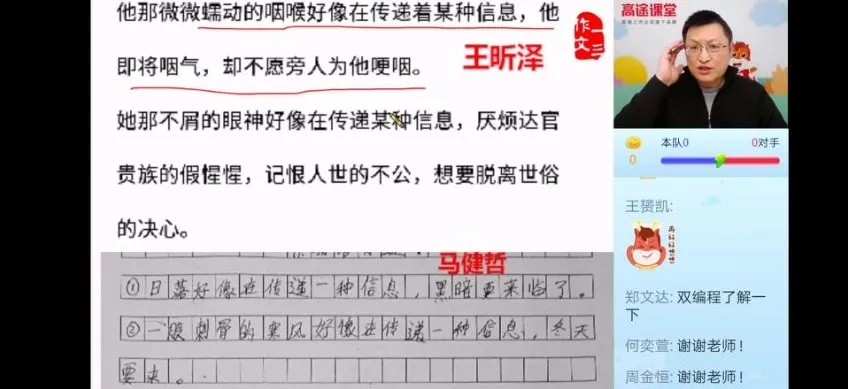 他那微微蠕动的咽喉好像在传递着某种信息，他
即将咽气，却不愿旁人为他哽咽。
王昕泽
作文
一三
她那不屑的眼神好像在传递某种信息，厌烦达官
贵族的假惺惺，记恨人世的不公，想要脱离世俗
的决心。
马健哲
①日落好像在传递一种信息，黑暗要来临了。
②一股刺骨的寒风好像在传递一种信息，冬天
要来。
高途课堂
本队0
0对手
0
王赟凯：
郑文达：双编程了解一
下
何奕萱：谢谢老师！
周金恒：谢谢老师！